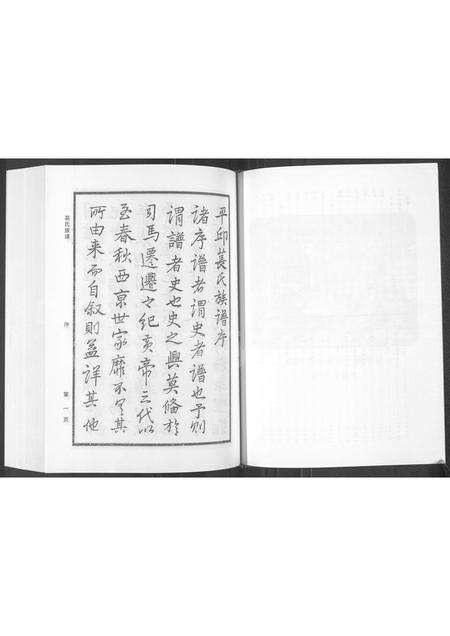 平邱萇氏族譜序
諸序譜者謂史者譜也予則
謂譜者史也史之興莫備於
司馬遷遷之紀黃帝三代以
至春秋西京世家靡不具其
所由来而自叙則益詳其他
萇氏族谱
序
第一页